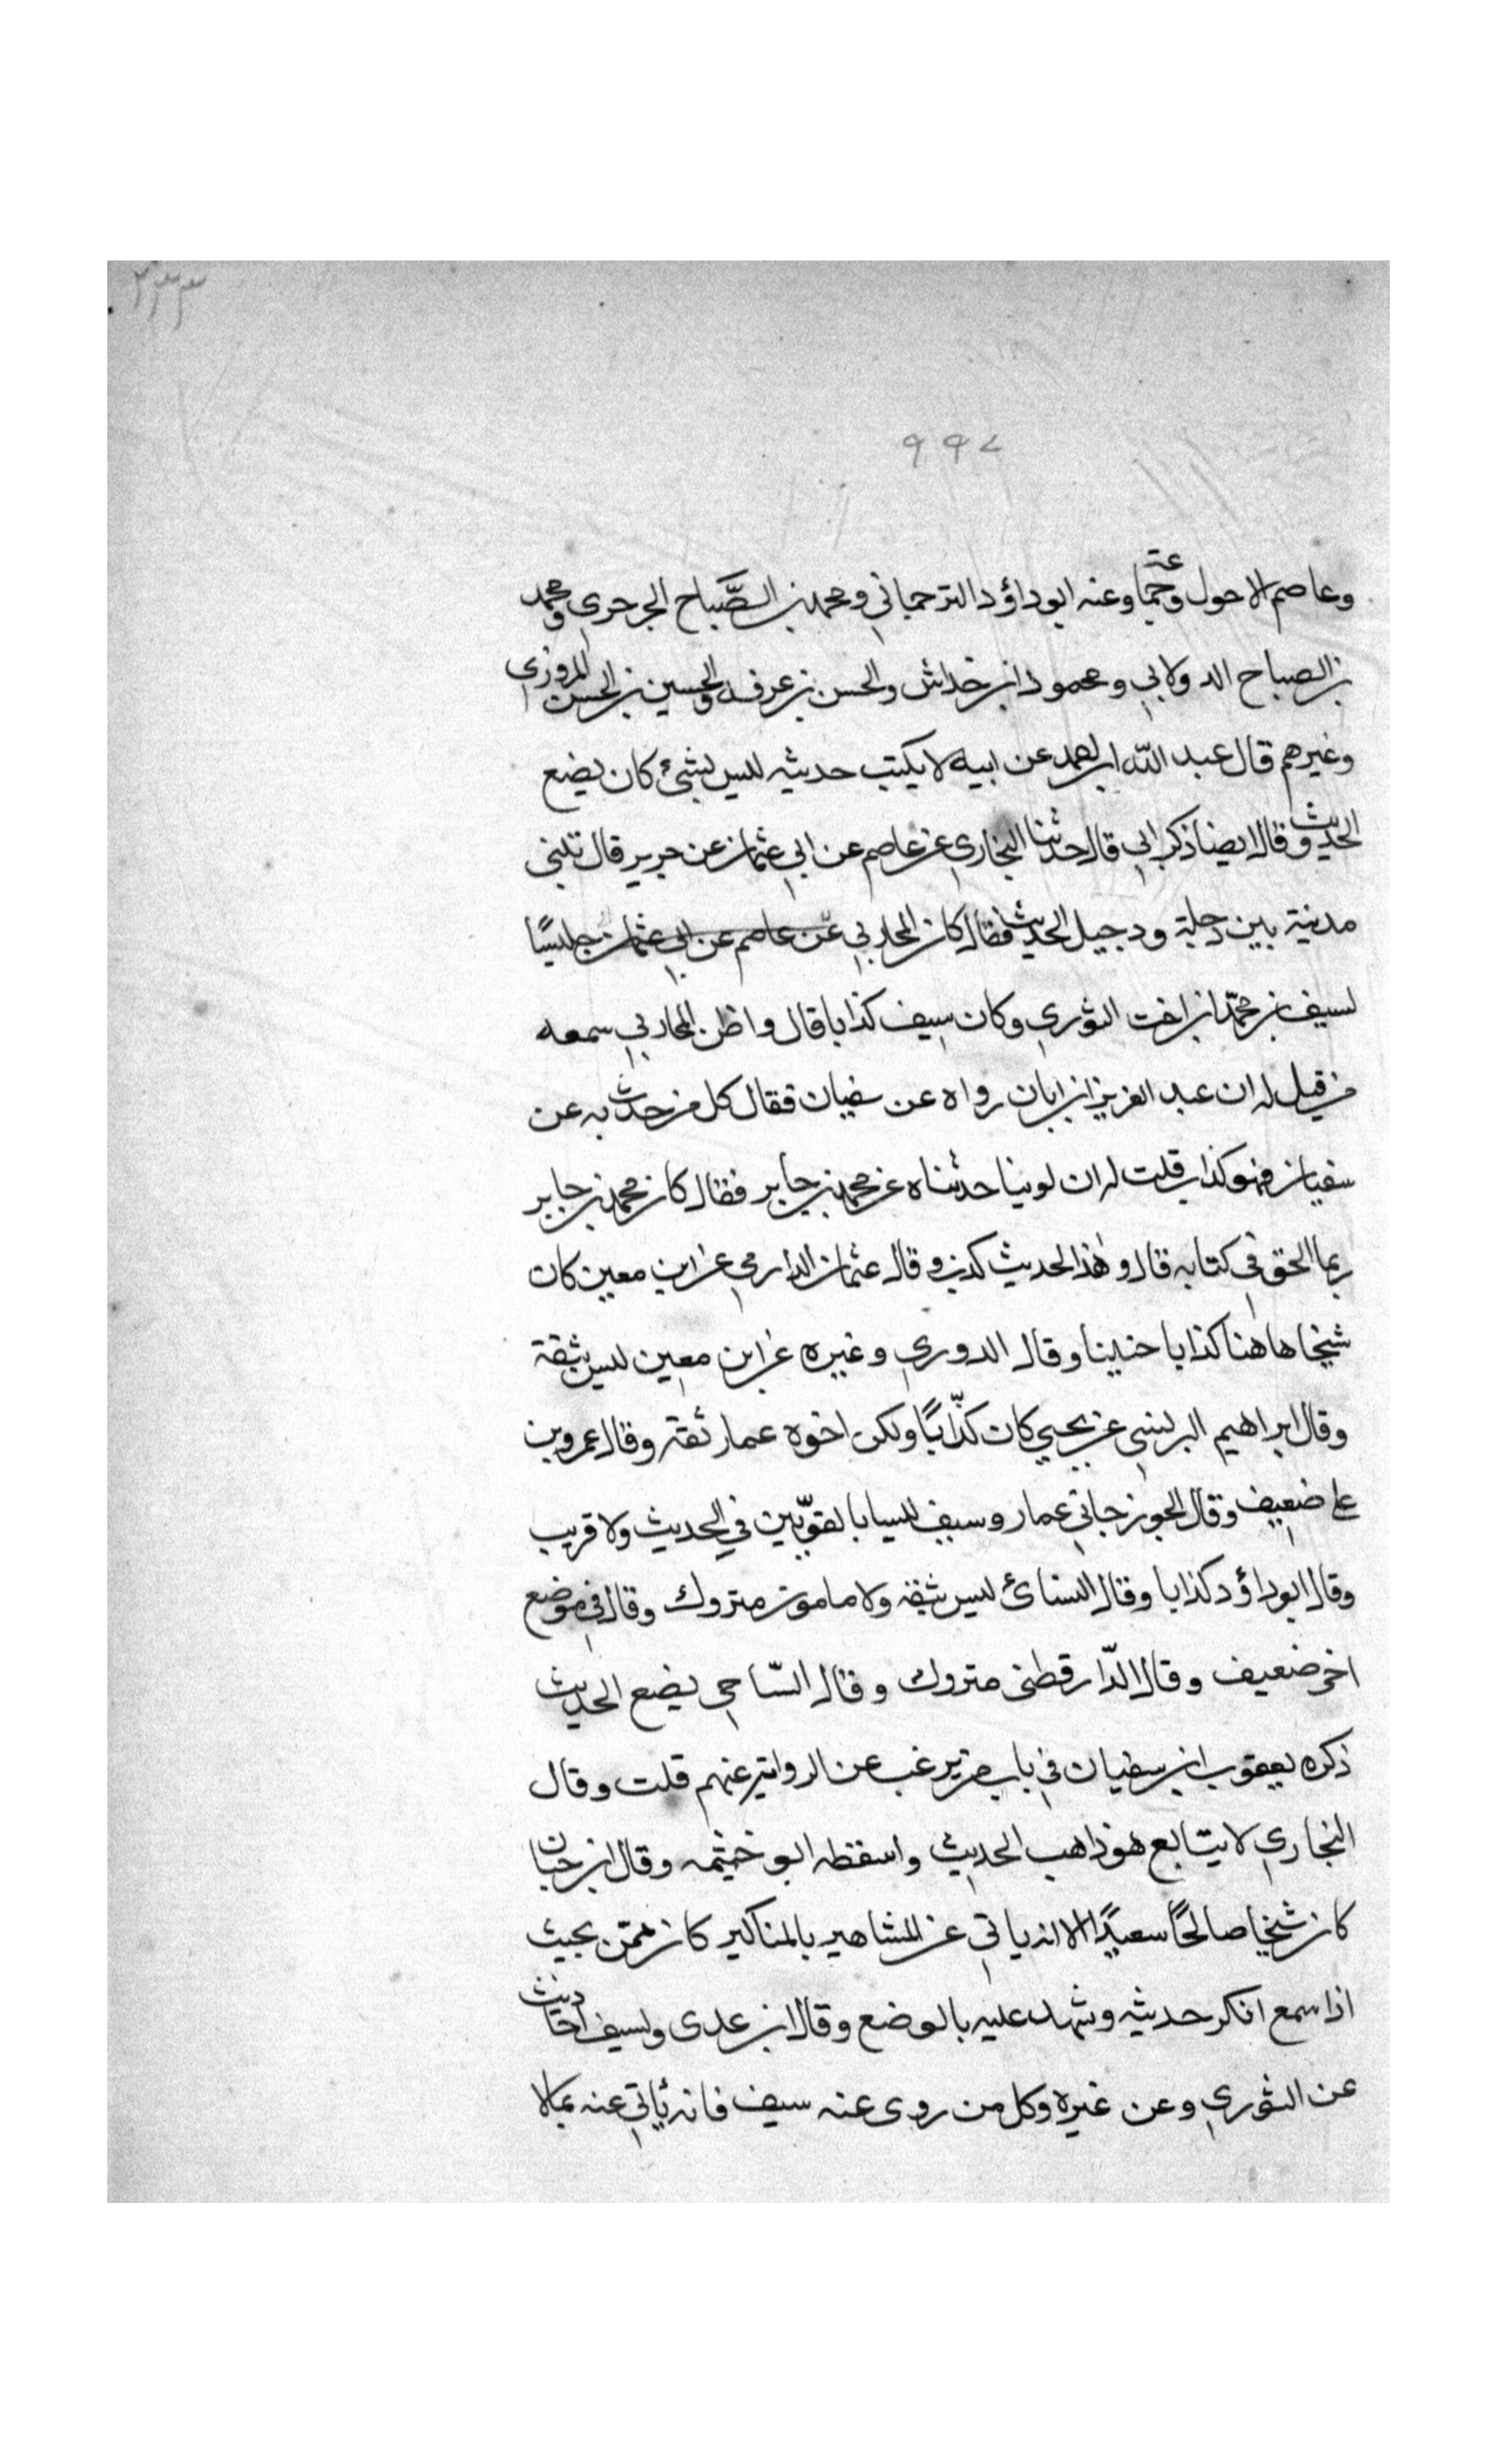 ٢٣٣
٩٩٧
وعاصم الاحول وجماعة وعنه ابو داؤد الترجماني ومحمد بن الصَّبَاح الجرجري ومحمد
بن الصباح الدولابي ومحمود ابن خداش والحسن بن عرفه والحسين بن الحسن المروزي
وغيرهم قال عبد الله ابن احمد عن ابيه لا يكتب حديثه ليس بشئ كان يضع
الحديث وقال ايضا ذكر ابي قال حدثنا البخاري عن عاصم عن ابي عثمان عن جرير قال تبنى
مدينة بين دجلة ودجيل الحديث فقال كان المحاربي عن عاصم عن ابي عثمان جليسًا
لسيف بن محمّد ابن اخت الثوري وكان سيف كذابا قال واظن المحاربي سمعه
من قيل له ان عبد العزيز ابن ابان رواه عن سفيان فقال كل من حدث به عن
سفيان فهو كذاب قلت له ان لوينا حدثناه عن محمد بن جابر فقال كان محمد بن جابر
ربما الحق في كتابه قال وهذا الحديث كذب وقال عثمان الدارمي عن ابن معين كان
شيخا هاهنا كذابا خبيثا وقال الدوري وغيره عن ابن معين ليس بثقة
وقال ابراهيم البرلسي عن يحيي كان كذّابًا ولكن اخوه عمار ثقة وقال عمرو بن
على ضعيف وقال الجوزجاني عمار وسيف ليسا بالقويّين في الحديث ولا قريب
وقال ابو داؤد كذابا وقال النسائ ليس بثقة ولا مامون متروك وقال في موضع
اخر ضعيف وقال الدّارقطنى متروك وقال السّاجى يضع الحديث
ذكره يعقوب ابن سفيان في باب من يرغب عن الرواية عنهم قلت وقال
البخاري لا يتابع هو ذاهب الحديث واسقطه ابو خيثمه وقال ابن حبان
كان شيخا صالحًا سعيدًا الا انه ياتي عن المشاهير بالمناكير كان ممّن بحيث
اذا سمع انكر حديثه وشهد عليه بالوضع وقال ابن عدى ولسيف احاديث
عن الثوري وعن غيره وكل من روى عنه سيف فانه يأتي عنه بما لا